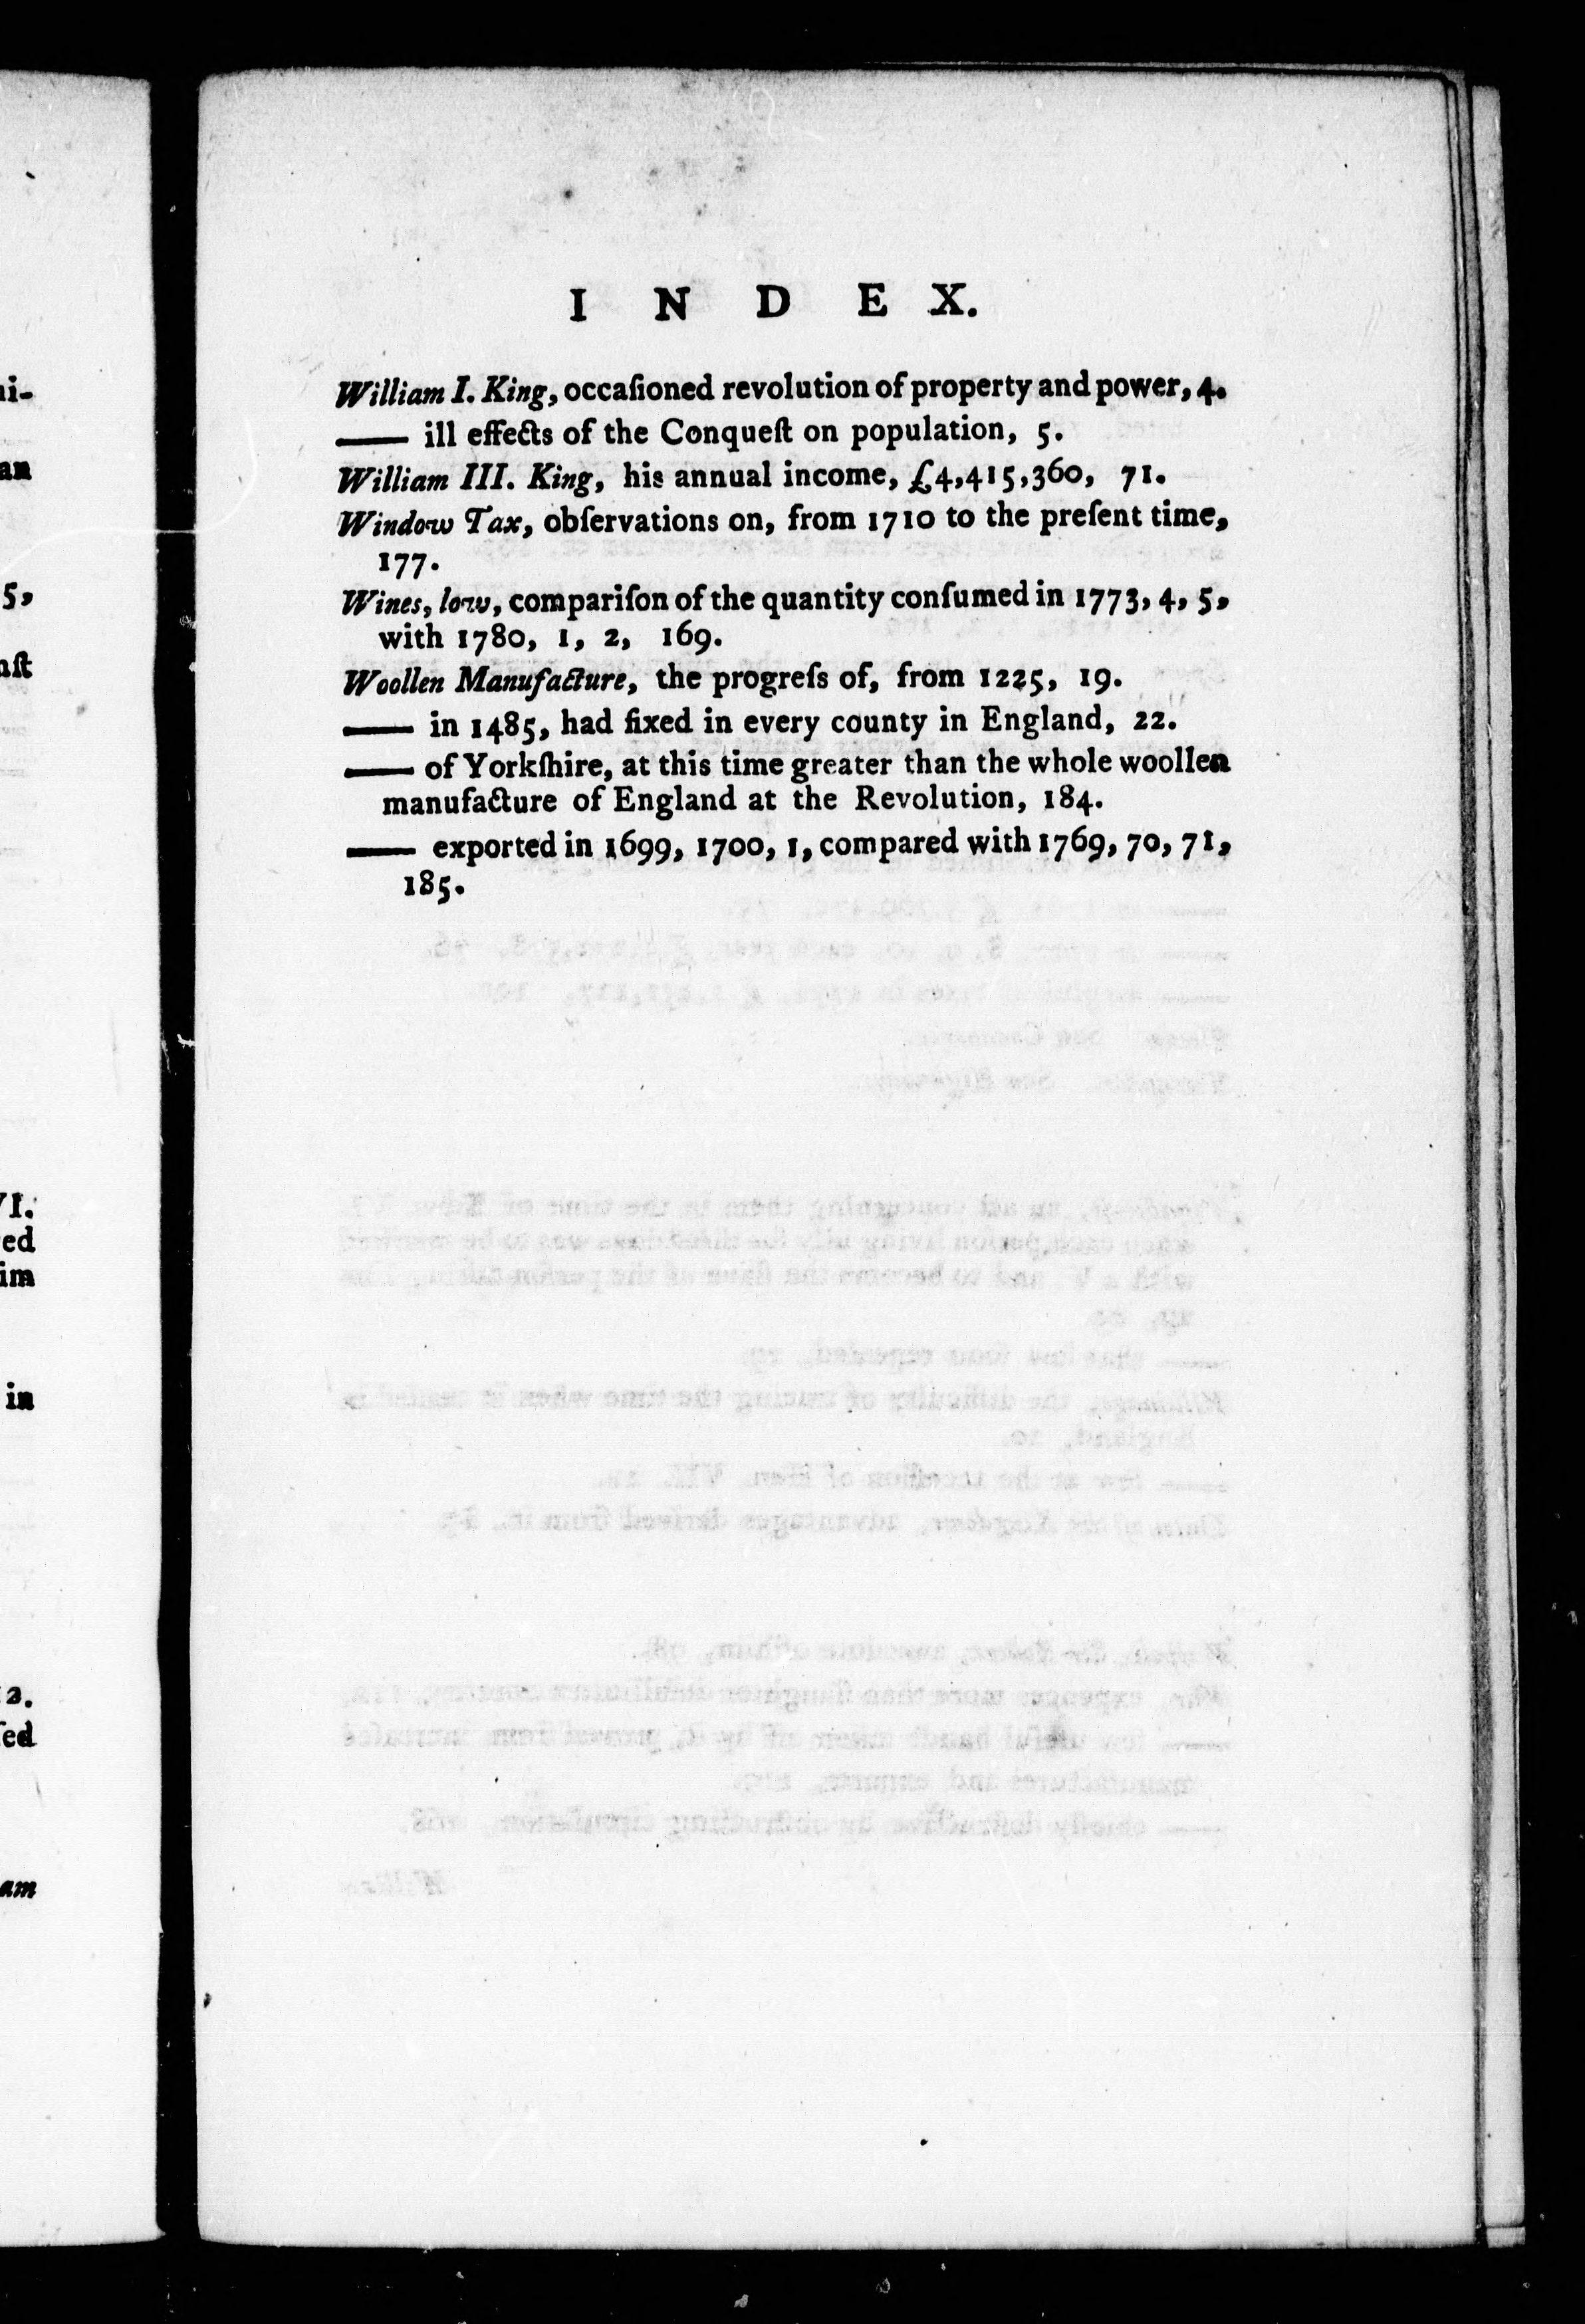 I N D E X.
William I. King, occaſioned revolution of property and power, 4.
—— ill effects of the Conqueſt on population, 5.
William III. King, his annual income, £4,415,360, 71.
Window Tax, obſervations on, from 1710 to the preſent time,
177.
Wines, low, compariſon of the quantity conſumed in 1773, 4, 5,
with 1780, 1, 2, 169.
Woollen Manufacture, the progreſs of, from 1225, 19.
—— in 1485, had fixed in every county in England, 22.
—— of Yorkſhire, at this time greater than the whole woollen
manufacture of England at the Revolution, 184.
—— exported in 1699, 1700, 1, compared with 1769, 70, 71,
185.